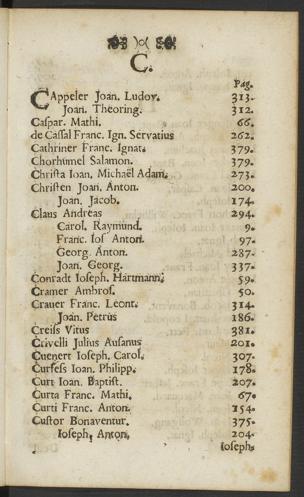 C.
Pag.
CAppeler Joan. Ludov. 313.
Joan. Theoring. 312.
Caspar. Mathi. 66.
de Cassal Franc. Ign. Servatius 262.
Cathriner Franc. Ignat. 379.
Chorhümel Salamon. 379.
Christa Ioan. Michaël Adam. 273.
Christen Joan. Anton. 200.
Joan. Jacob. 174.
Claus Andreas 294.
Carol. Raymund. 9.
Franc. Ios Anton. 97.
Georg. Anton. 287.
Joan. Georg. 337.
Conradt Ioseph. Hartmann. 59.
Cramer Ambros. 50.
Crauer Franc. Leont. 314.
Joan. Petrus 186.
Creiss Vitus 381.
Crivelli Julius Ausanus 201.
Cuenert Ioseph. Carol. 307.
Cursess Ioan. Philipp. 178.
Curt Ioan. Baptist. 207.
Curta Franc. Mathi. 67.
Curti Franc. Anton. 154.
Custor Bonaventur. 375.
Ioseph. Anton. 204.
Ioseph.